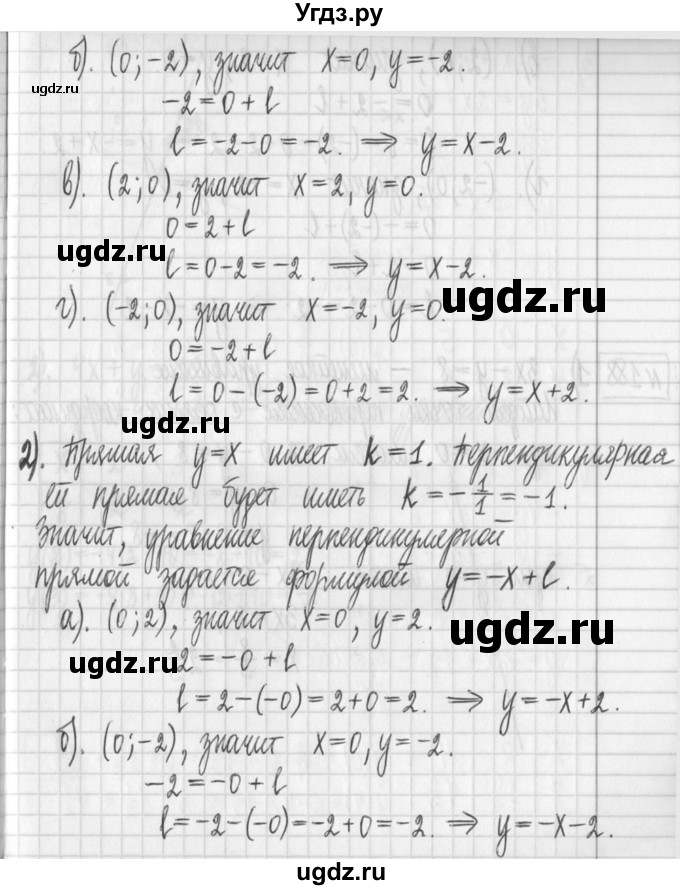 Угдз.ру
б). (0; -2), значит x=0, y=-2.
ugdz.ru
-2=0+l
l=-2-0=-2. ⟹ y=x-2.
в). (2; 0), значит x=2, y=0.
0=2+l
ugdz.ru
l=0-2=-2. ⟹ y=x-2.
ugdz.ru
г). (-2; 0), значит x=-2, y=0.
0=-2+l
l=0-(-2)=0+2=2. ⟹ y=x+2.
ugdz.ru
2). Прямая y=x имеет k=1. Перпендикулярная
ей прямая будет иметь k=-1/1=-1.
Значит, уравнение перпендикулярной
прямой задается формулой y=-x+l.
а). (0; 2), значит x=0, y=2.
ugdz.ru
2=-0+l
ugdz.ru
l=2-(-0)=2+0=2. ⟹ y=-x+2.
б). (0; -2), значит x=0, y=-2.
-2=-0+l
ugdz.ru
l=-2-(-0)=-2+0=-2. ⟹ y=-x-2.
ugdz.ru